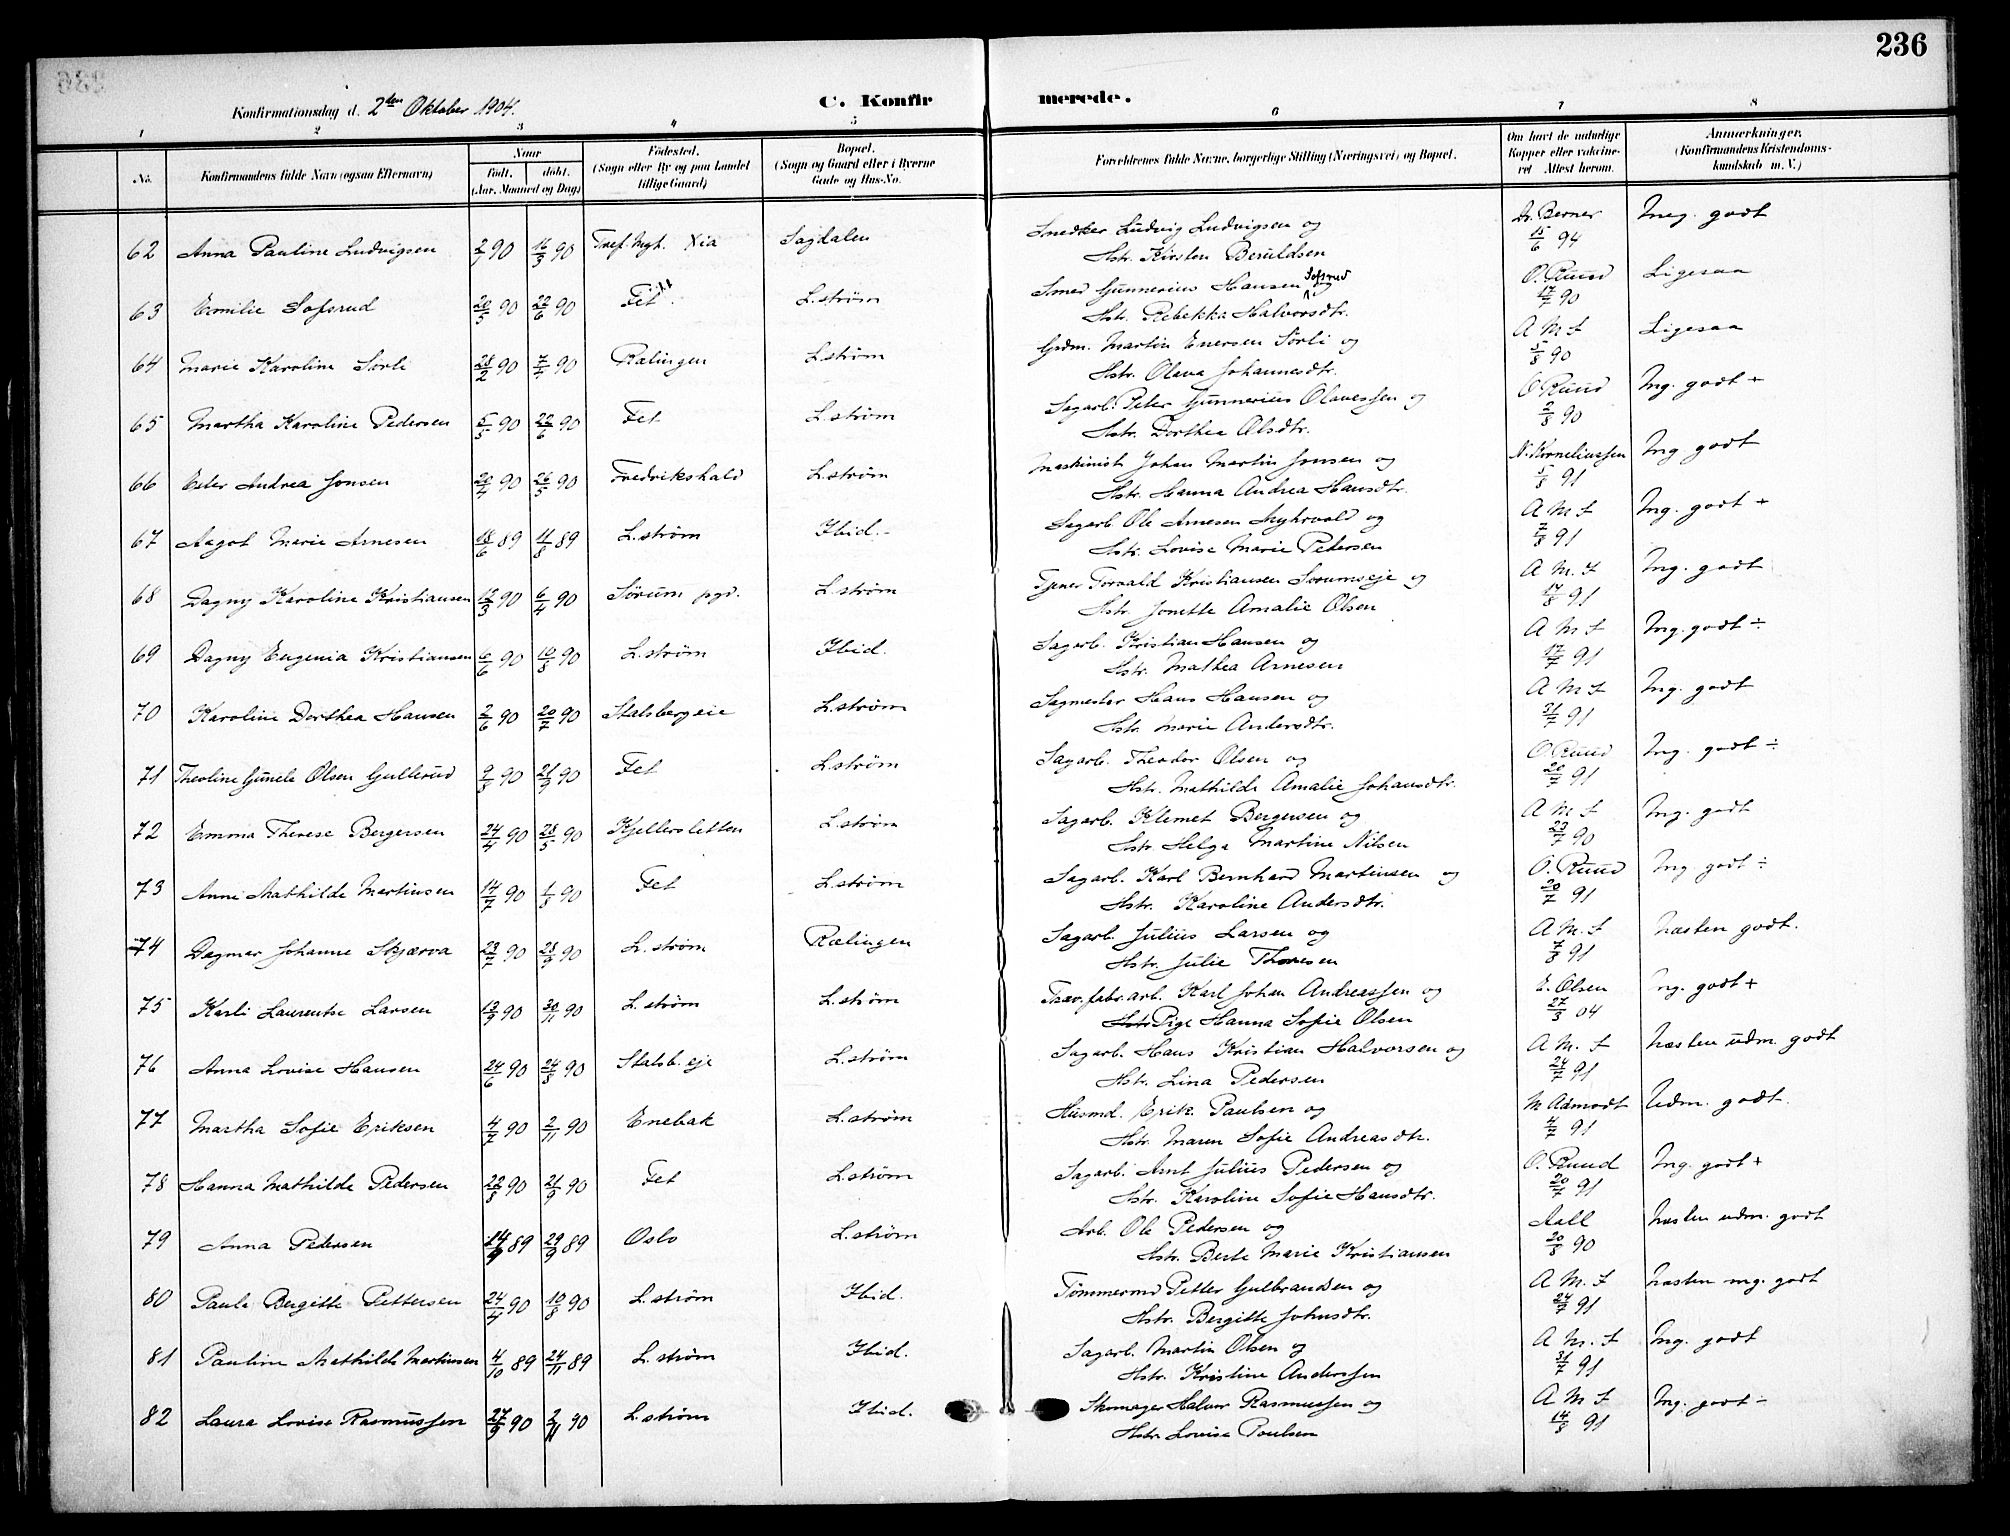 236
Konfirmationsdag d. 2den Oktober 1904.
C. Konfir merede.
1 2 3 4 5 6 7 8
No. Konfirmandens fulde Navn (ogsaa Efternavn) Naar født. døbt. (Aar, Maaned og Dag) Fødested. (Sogn eller By og paa Landet tillige Gaard) Bopæl. (Sogn og Gaard eller i Byerne Gade og Hus-No. Forældrenes fulde Navne, borgerlige Stilling (Næringsvei) og Bopæl. Om havt de naturlige Kopper eller vakcineret Attest herom. Anmærkninger. (Konfirmandens Kristendomskundskab m. V.)
62 Anna Pauline Ludvigsen 2/1 90 16/3 90 Xia Sagdalen Snedker Ludvig Ludvigsen og Dr. Berner Meg. godt
Hstr. Kirsten Beruldsen 15/6 94
63 Emilie Sofsrud 20/5 90 22/6 90 Fet L.strøm Smed Gunnerius Hansen Sofsrud og O. Ruud Ligesaa
Hstr. Rebekka Halvorsdtr. 17/7 90
64 Marie Karoline Sørli 28/2 90 7/4 90 Rælingen L.strøm Grdm. Martin Enersen Sørli og A M F Ligesaa
Hstr. Olava Johannesdtr. 5/8 90
65 Martha Karoline Pedersen 5/5 90 22/6 90 Fet L.strøm Sagarb. Peter Gunnerius Olavessen og O Ruud Mg. godt +
Hstr. Dorthea Olsdtr. 2/8 90
66 Ester Andrea Jonsen 20/4 90 26/5 90 Fredrikshald L.strøm Maskinist Johan Martin Jonsen og N. Korneliussen Mg godt
Hstr. Hanna Andrea Hansdtr. 5/8 91
67 Aagot Marie Arnesen 18/6 89 11/8 89 L.strøm Ibid. Sagarb Ole Arnesen Myhrvold og A M F Mg. godt +
Hstr. Lovise Marie Petersen 7/8 91
68 Dagny Karoline Kristiansen 12/3 90 6/4 90 Sørum pgd. L.strøm Tjener Torvald Kristiansen Sorumseje og A M. F Mg. godt
Hstr. Jonette Amalie Olsen 17/8 91
69 Dagny Eugenia Kristiansen 6/6 90 10/8 90 L.strøm Ibid. Sagarb. Kristian Hansen og A M F Mg. godt ÷
Hstr. Mathea Arnesen 17/7 91
70 Karoline Dorthea Hansen 2/6 90 20/7 90 Stalsbergeie L.strøm Sagmester Hans Hansen og A M F Mg. godt
Hstr. Marie Andersdtr. 31/7 91
71 Theoline Gunele Olsen Gullerud 9/8 90 21/9 90 Fet L.strøm Sagarb. Theodor Olsen og O Ruud Mg. godt ÷
Hstr. Mathilde Amalie Johansdtr. 20/7 91
72 Emma Therese Bergersen 24/4 90 28/5 90 Kjellersletten L.strøm Sagarb. Klemet Bergersen og A M F Mg. godt
Hstr. Helga Martine Nilsen 23/7 90
73 Anne Mathilde Martinsen 14/7 90 1/8 90 Fet L.strøm Sagarb. Karl Bernhard Martinsen og O. Ruud Mg godt ÷
Hstr. Karoline Andersdtr. 20/7 91
74 Dagmar Johanne Skjærva 23/7 90 28/9 90 L.strøm Rælingen Sagarb. Julius Larsen og A M. F næsten godt.
Hstr. Julie Thoresen 7/8 91
75 Karli Laurentse Larsen 13/9 90 30/11 90 L.strøm L.strøm Træv.fabr.arb. Karl Johan Andreassen og E. Olsen mg. godt +
Hstr Pige Hanna Sofie Olsen 27/3 04
76 Anna Lovise Hansen 24/6 90 24/8 90 Stalsb.eje L.strøm Sagarb. Hans Kristian Halvorsen og A M. F næsten udm. godt
Hstr. Lina Pedersen 24/7 91
77 Martha Sofie Eriksen 4/7 90 2/11 90 Enebak L.strøm Husmd. Erik Paulsen og M Aamodt Udm. godt.
Hstr. Maren Sofie Andreasdtr. 4/7 91
78 Hanna Mathilde Pedersen 22/8 90 21/9 90 Fet L.strøm Sagarb. Arnt Julius Pedersen og O. Ruud Mg. godt +
Hstr. Karoline Sofie Hansdtr. 20/7 91
79 Anna Pedersen 14/9 89 29/9 89 Oslo L.strøm Arb. Ole Pedersen og Aall næsten udm. godt
Hstr. Berte Marie Kristiansen 20/8 90
80 Paula Bergitte Pettersen 24/4 90 10/8 90 L.strøm Ibid. Tømmermd Petter Gulbrandsen og A M. F næsten mg. godt
Hstr. Bergitte Johnsdtr. 24/7 91
81 Pauline Mathilde Martinsen 4/10 89 24/11 89 L.strøm Ibid. Sagarb. Martin Olsen og A M. F Mg. godt
Hstr. Kristine Anderssen 31/7 91
82 Laura Lovise Rasmussen 27/9 90 2/11 90 L.strøm Ibid. Skomager Halvor Rasmussen og A M F Mg. godt ÷
Hstr Lovise Poulsen 14/8 91